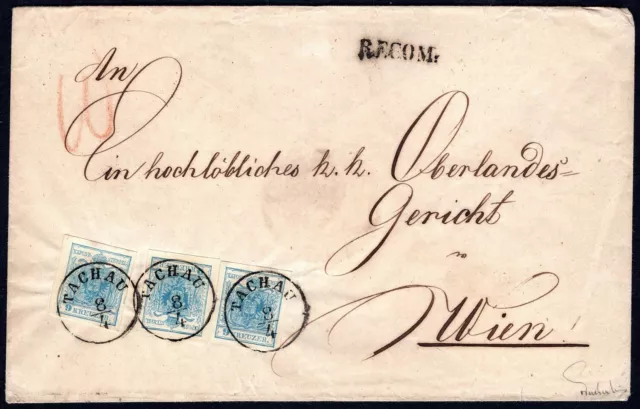 RECOM.
An
Ein hochlöbliches k. k. Oberlandes=
Gericht
Wien
TACHAU
8/4
TACHAU
8/4
TACHAU
8/4
9 KREUZER
KREUZER